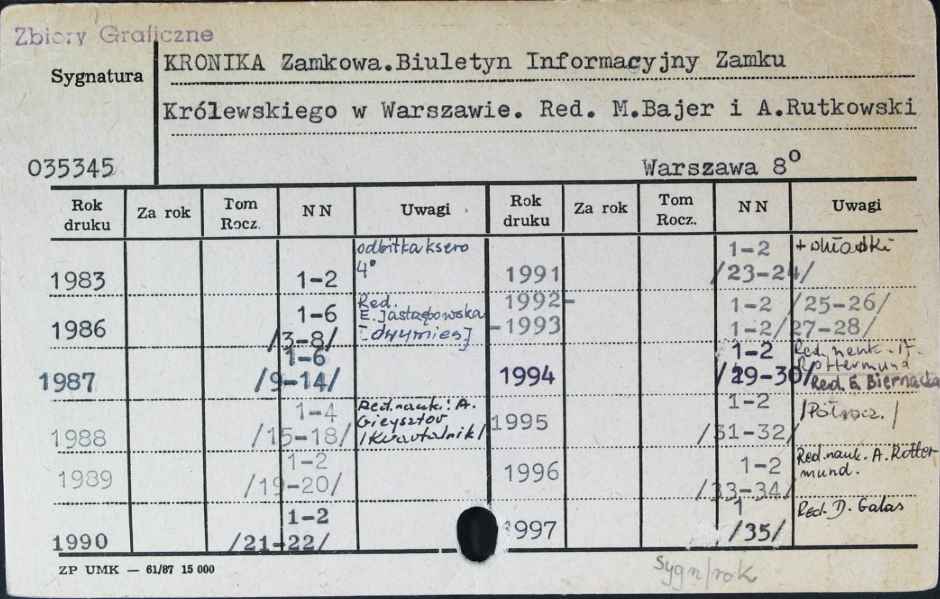 Zbiory Graficzne
Sygnatura
KRONIKA Zamkowa.Biuletyn Informacyjny Zamku
Królewskiego w Warszawie. Red. M.Bajer i A.Rutkowski
035345
Warszawa 8⁰
Rok druku Za rok Tom Rocz. NN Uwagi Rok druku Za rok Tom Rocz. NN Uwagi
1983 1-2 odbitka ksero 4°
1986 1-6 /3-8/ Red. E. Jastrzębowska [dwumies]
1987 1-6 /9-14/
1988 1-4 /15-18/ Red. nauk: A. Gieysztor /Kwartalnik/
1989 1-2 /19-20/
1990 1-2 /21-22/
1991 1-2 /23-24/ + okładki
1992- 1-2 /25-26/
-1993 1-2/27-28/
1994 1-2 /29-30/ Red. nauk. Red. E. Biernacka
1995 1-2 /31-32/ /Półrocz./
1996 1-2 /33-34/ Red. nauk. A. Rottermund.
1997 1 /35/ Red. D. Galas
ZP UMK — 61/87 15 000
sygn/rok